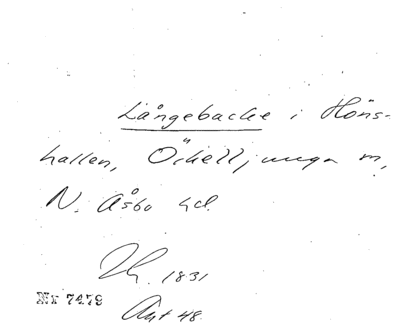 Långebacke i Höns-
hallen, Öckelljunga sn,
N. Åsbo hd.
1831
Nr 7479
Ant 48.